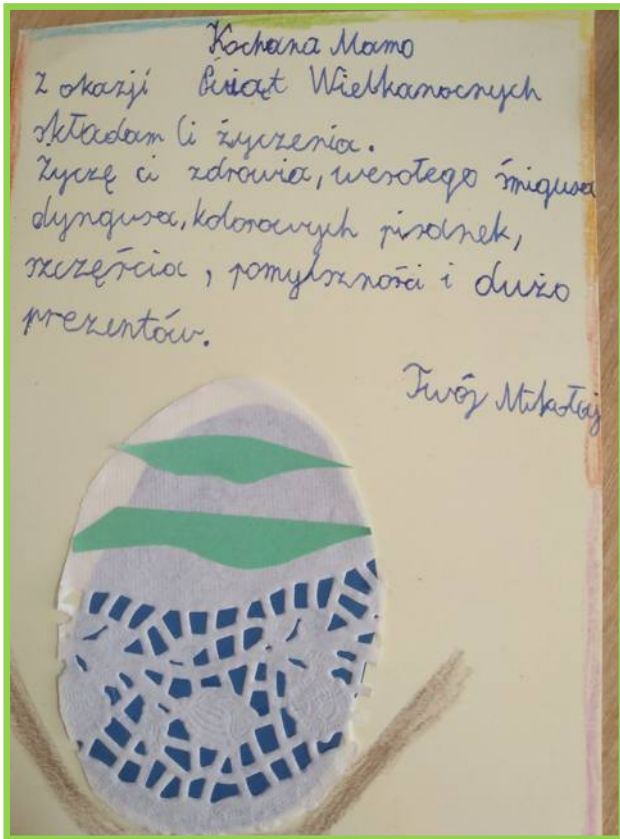 Kochana Mamo
Z okazji Świąt Wielkanocnych
składam Ci życzenia.
Życzę ci zdrowia, wesołego śmigusa
dyngusa, kolorowych pisanek,
szczęścia, pomyślności i dużo
prezentów.
Twój Mikołaj